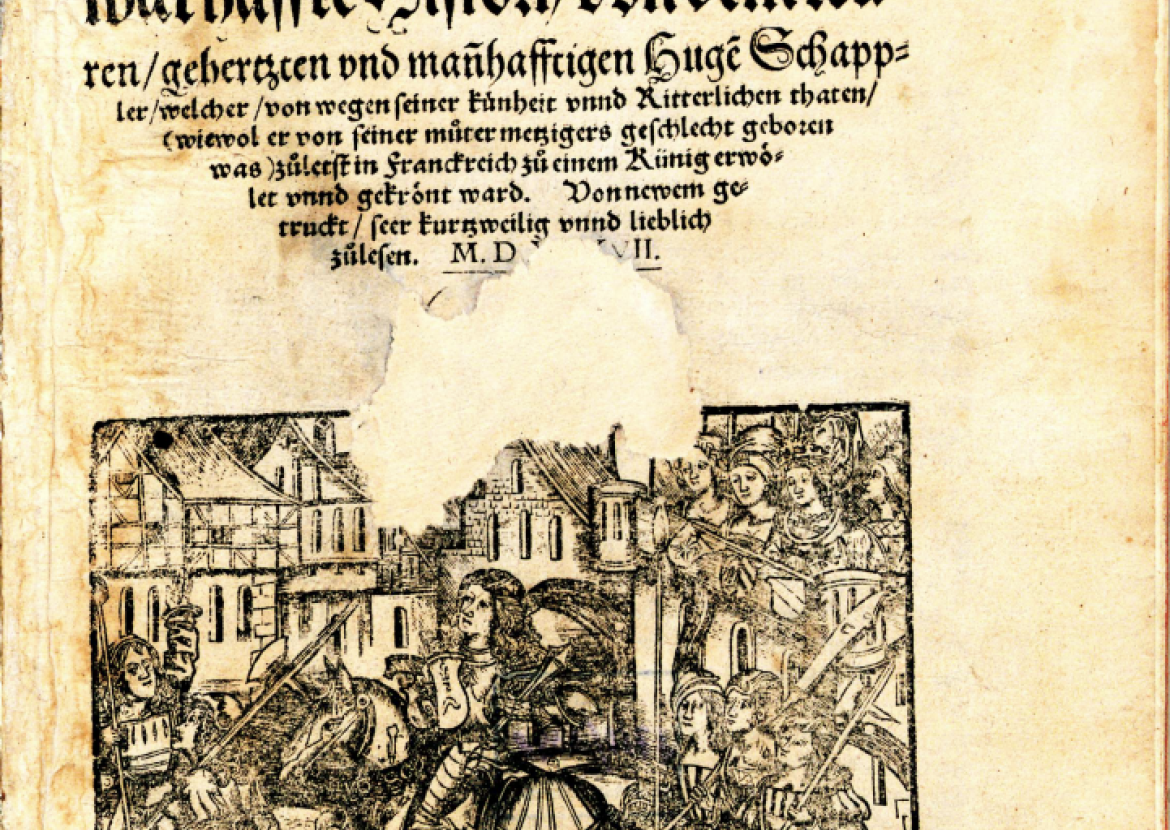 ren/gehertzten vnd mañhafftigen Hugē Schapp⸗
ler/welcher/von wegen seiner künheit vnnd Ritterlichen thaten/
(wiewol er von seiner můter metzigers geschlecht geboren
was)zůletst in Franckreich zů einem Künig erwö⸗
let vnnd gekrönt ward. Von newem ge⸗
truckt/ seer kurtzweilig vnnd lieblich
zůlesen. M. D VII.